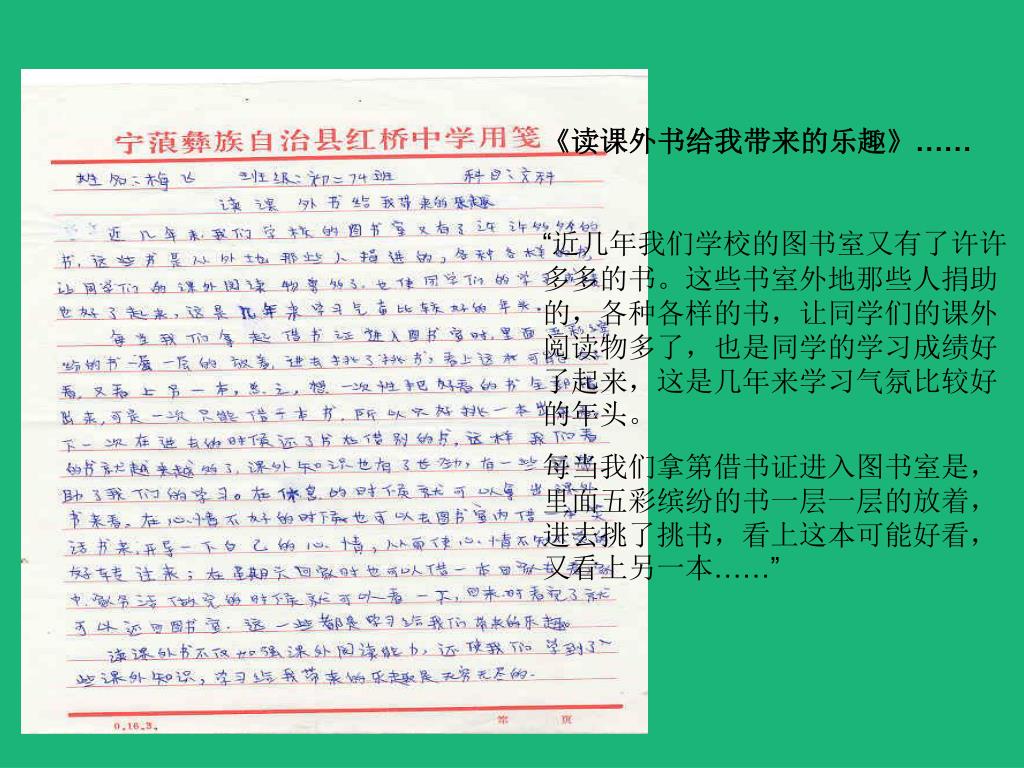 宁蒗彝族自治县红桥中学用笺
姓名:梅飞 班级:初二74班 科目:文科
读课外书给我带来的乐趣
近几年来,我们学校的图书室又有了许许多多的
书,这些书是从外地那些人捐进的,各种各样的书,
让同学们的课外阅读物多了,也使同学们的学习成绩
也好了起来,这是几年来学习气氛比较好的年头。
每当我们拿起借书证进入图书室时,里面五彩缤
纷的书一层一层的放着,进去挑了挑书,看上这本可能好
看,又看上另一本,总之,想一次性把好看的书全部
出来,可是一次只能借于本书,所以只好挑一本
下一次在进去的时候还了书在借别的书,这样我们看
的书就越来越多了,课外知识也有了
助了我们的学习。在休息的时候就可以拿出课外
书来看,在心情不好的时候也可以去图书室内借一本笑
话书来,开导一下自己的心情,从而使心情
好转过来;在星期六回家时也可以借一本回家去看,
中,家务活做完的时候就可以看一下,回来时看完了就
可以还回图书室。这一些都是学习给我们带来的乐趣。
读课外书不仅加强课外阅读能力,还使我们学到了一
些课外知识,学习给我带来的乐趣是无穷无尽的。
0.16.3.
第 页
《读课外书给我带来的乐趣》……
“近几年我们学校的图书室又有了许许
多多的书。这些书室外地那些人捐助
的,各种各样的书,让同学们的课外
阅读物多了,也是同学的学习成绩好
了起来,这是几年来学习气氛比较好
的年头。
每当我们拿第借书证进入图书室是,
里面五彩缤纷的书一层一层的放着,
进去挑了挑书,看上这本可能好看,
又看上另一本……”